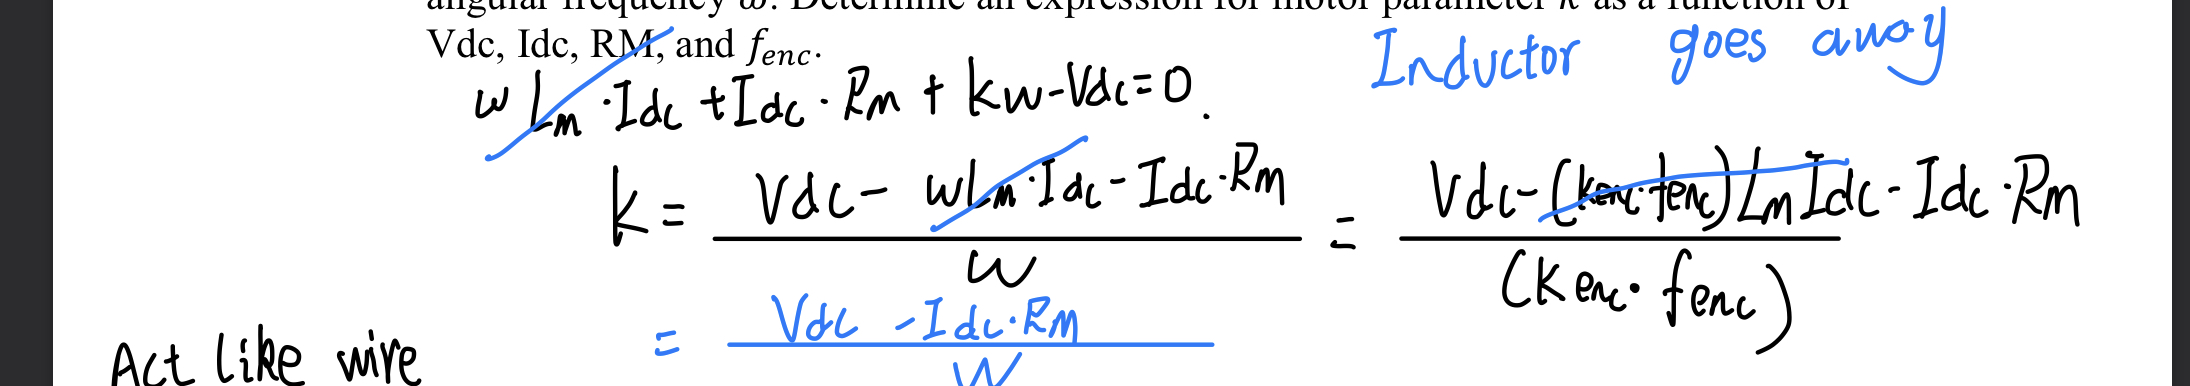 angular frequency ω. Determine an expression for motor parameter k as a function of
Vdc, Idc, RM, and fenc.
Inductor goes away
wLm·Idc + Idc·Rm + kw - Vdc = 0.
k = Vdc - wLm·Idc - Idc·Rm / w = Vdc - (kenc·fenc)LmIdc - Idc·Rm / (Kenc·fenc)
= Vdc - Idc·Rm / W
Act like wire